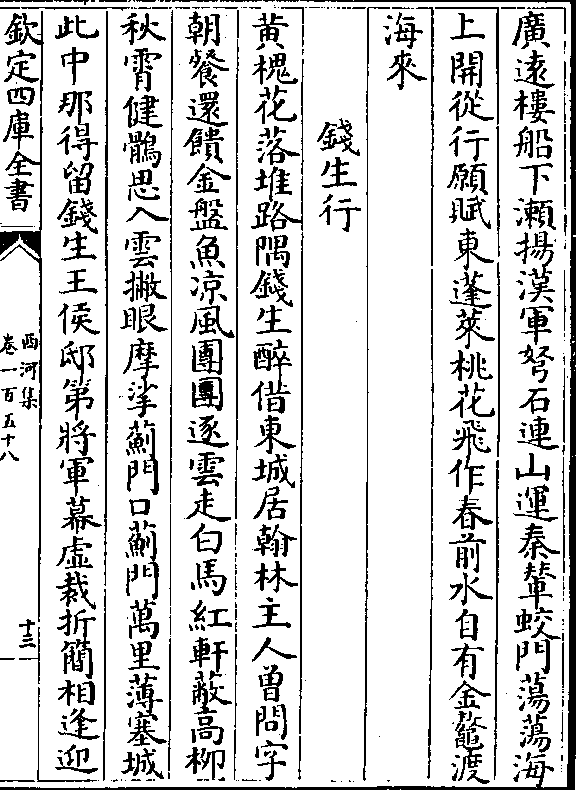 廣遠樓船下瀨揚漢軍弩石連山運秦輦蛟門蕩蕩海
上開從行願賦東蓬萊桃花飛作春前水自有金鼇渡
海來
錢生行
黃槐花落堆路隅錢生醉借東城居翰林主人曾問字
朝餐還饋金盤魚凉風團團逐雲走白馬紅軒蔽高柳
秋霄健鶻思入雲撇眼摩挲薊門口薊門萬里薄塞城
此中那得留錢生王侯邸第將軍幕虛裁折簡相逢迎
欽定四庫全書
西河集
卷一百五十八
十三